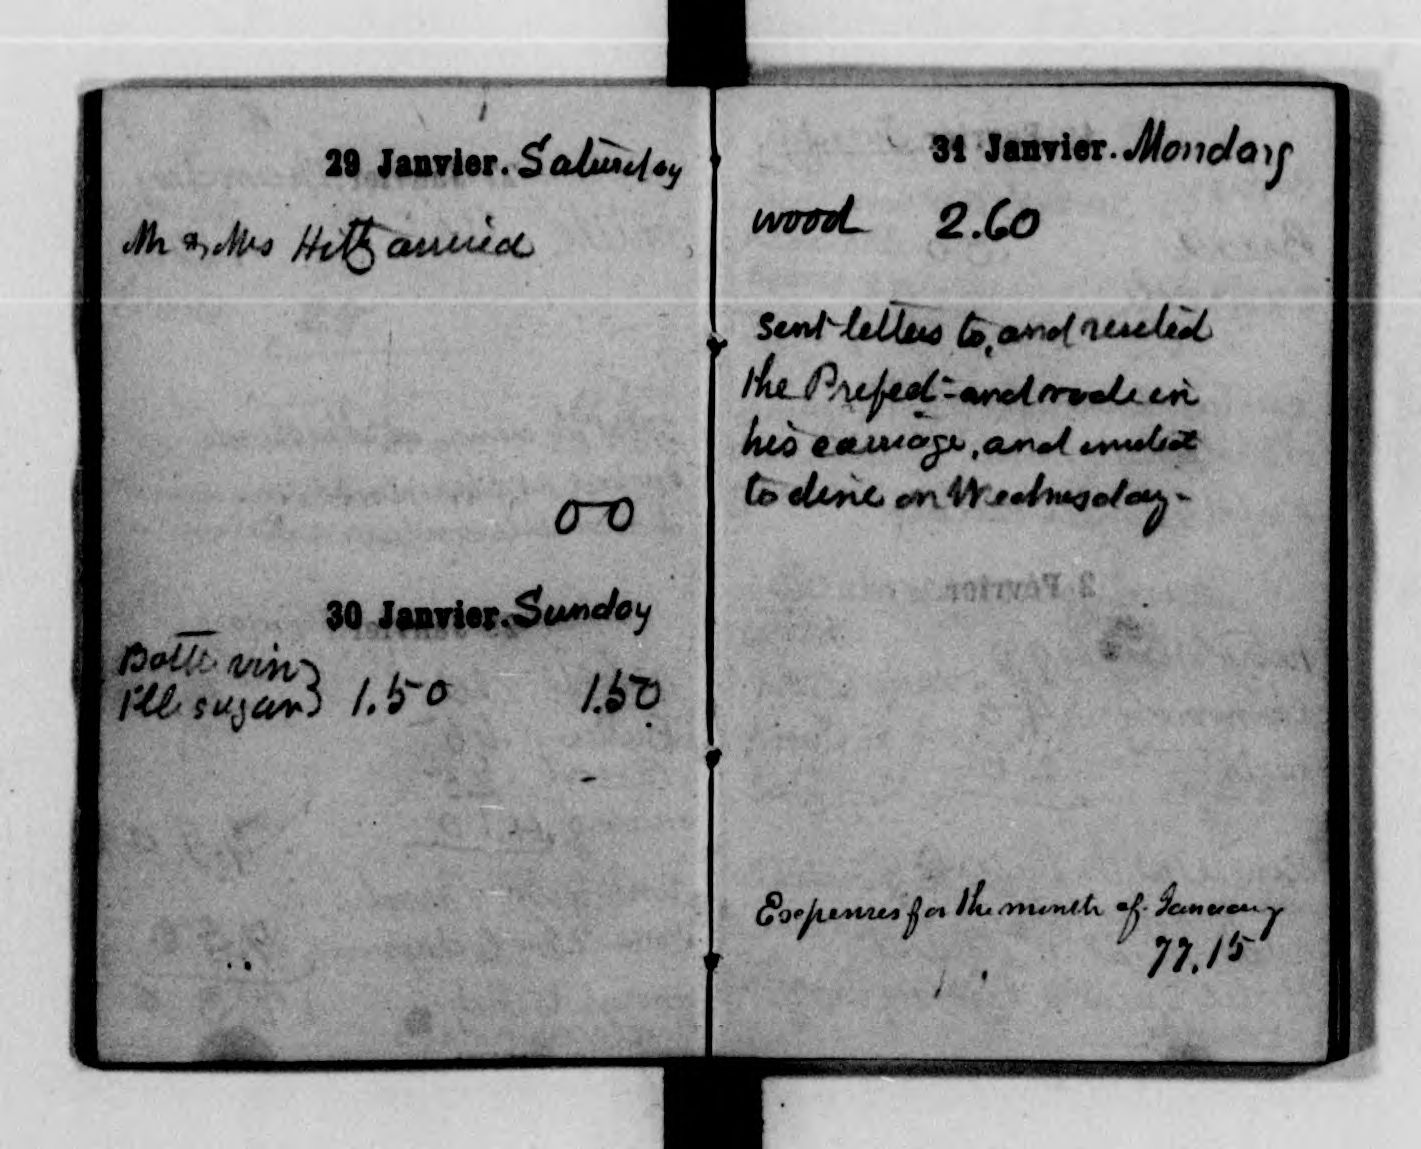 29 Janvier. Saturday
Mr & Mrs Hitz arrived
00
30 Janvier. Sunday
Bottle vin
1 lb sugar } 1.50 1.50
31 Janvier. Monday
wood 2.60
sent letters to, and visited
the Prefect - and rode in
his carriage, and invited
to dine on Wednesday -
Expenses for the month of January
77.15